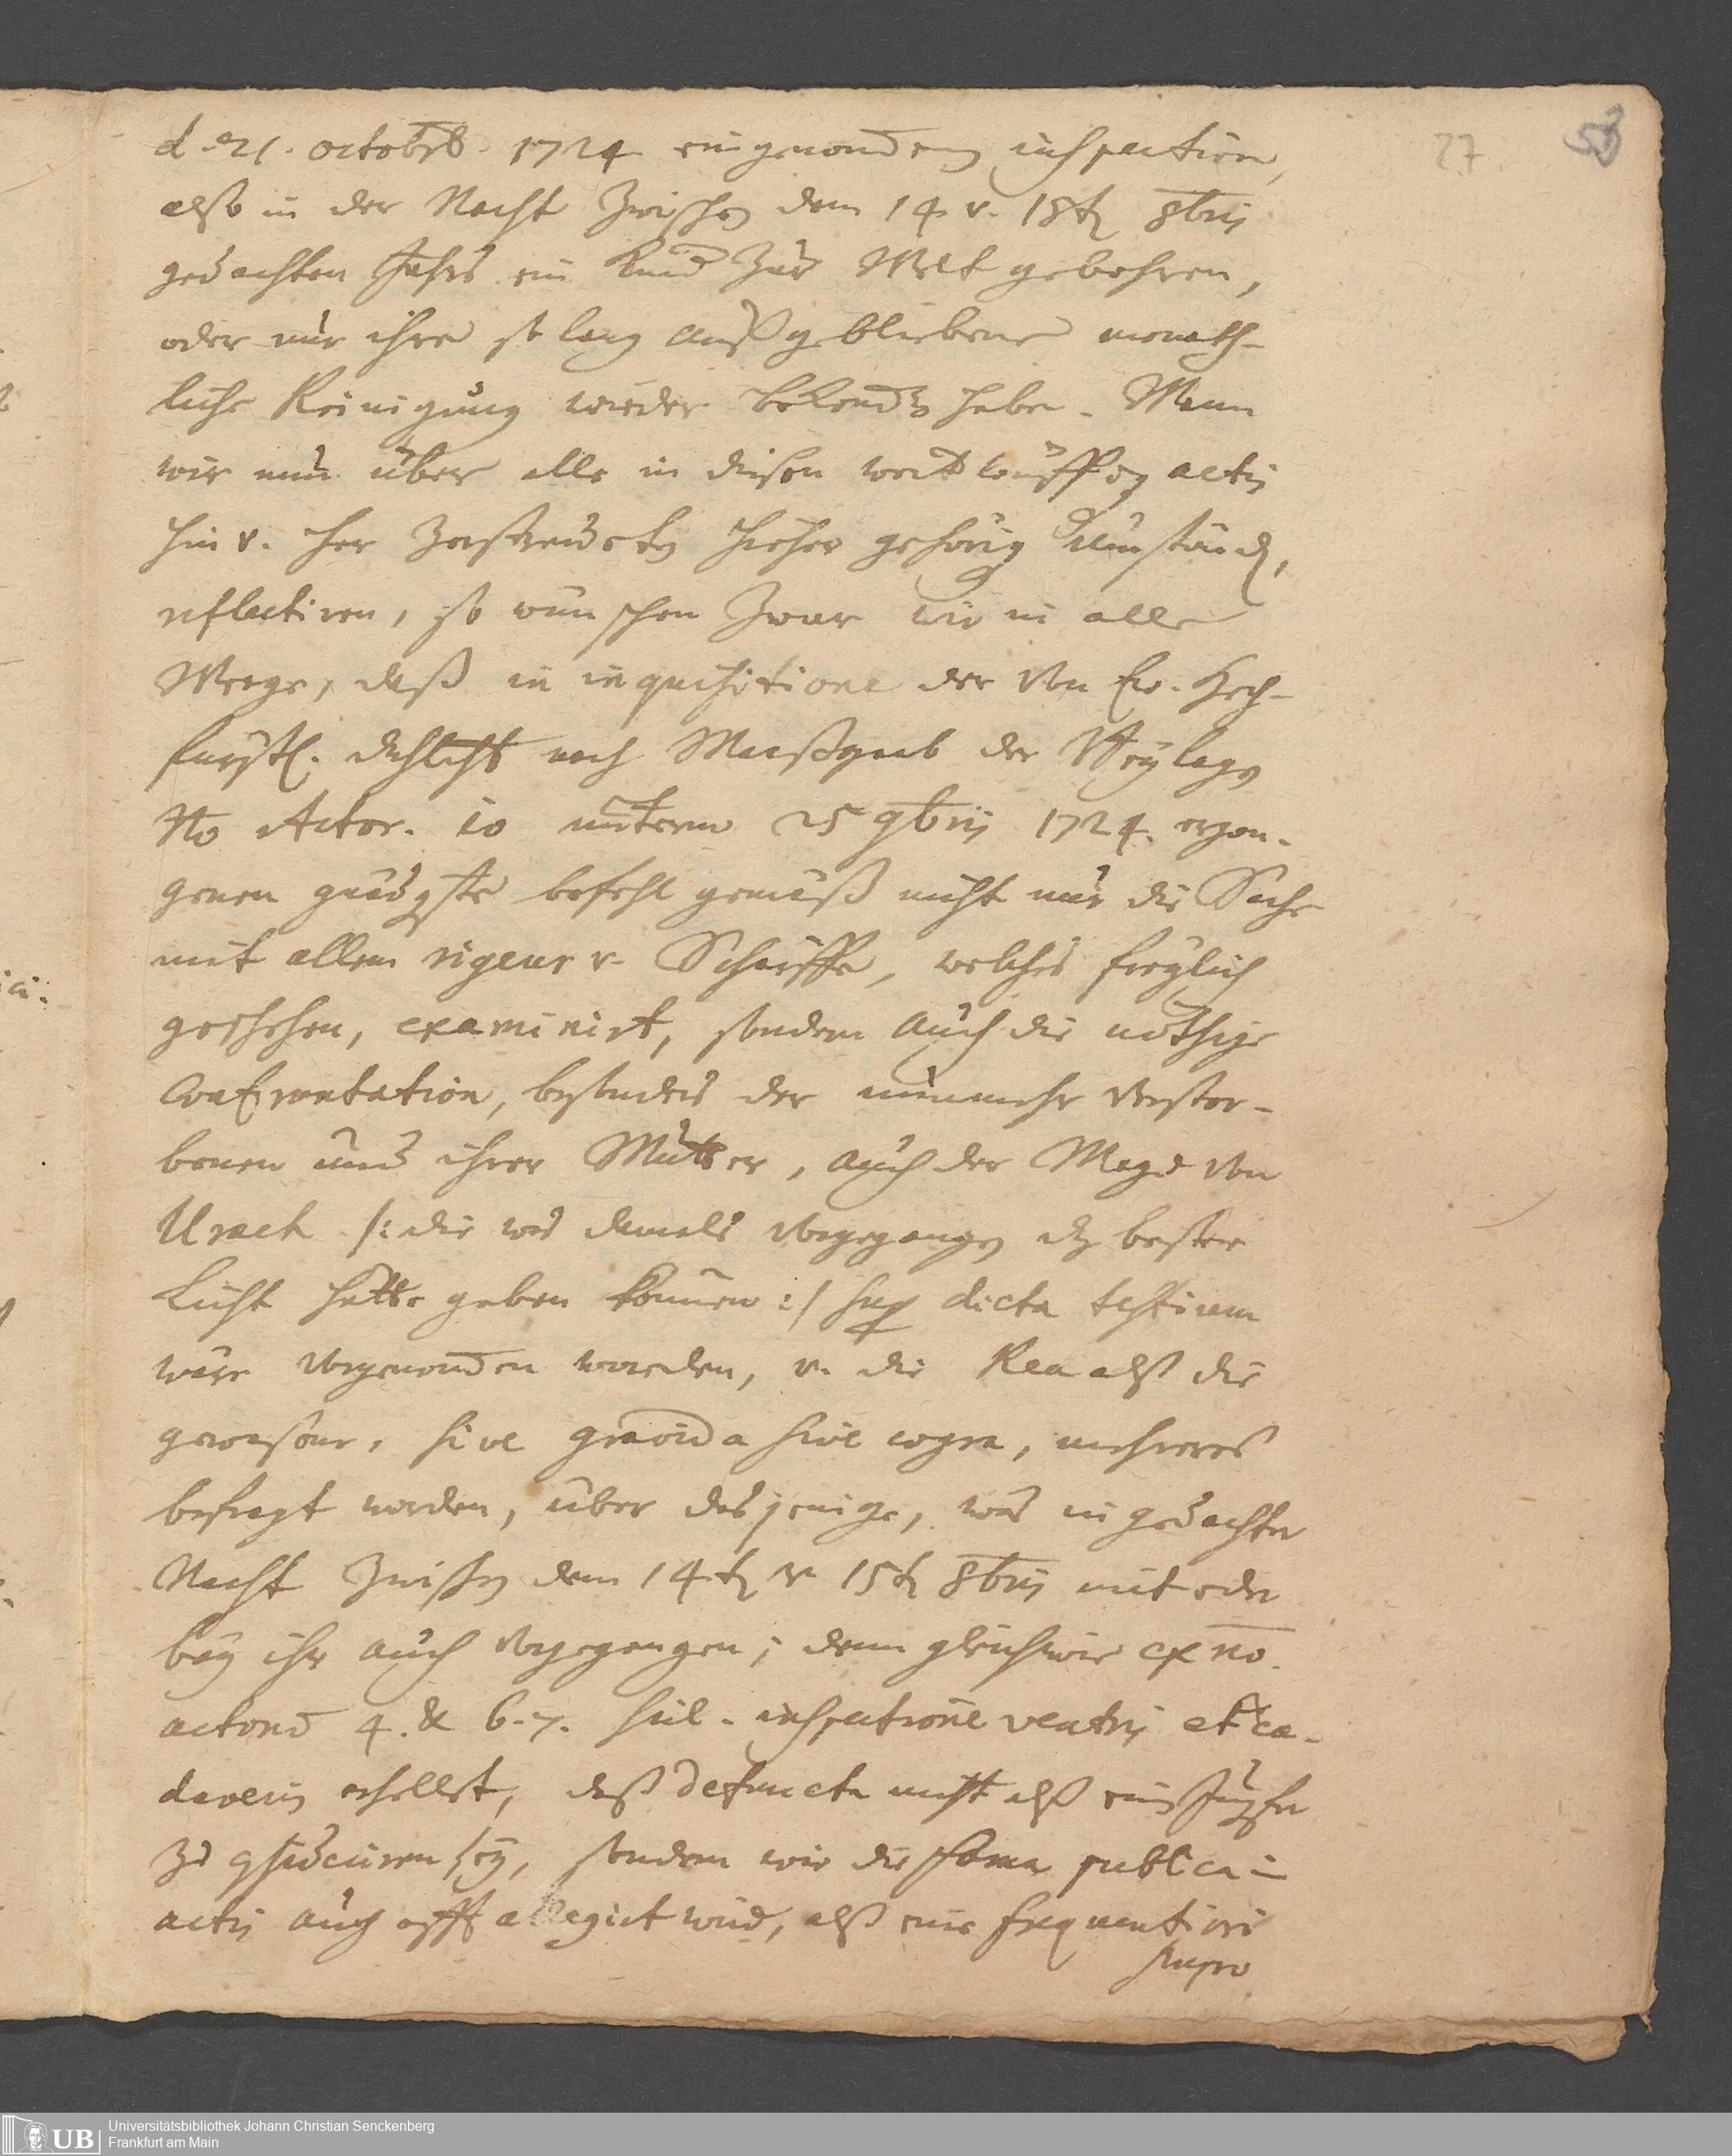 27 53
d. 21. octobrs. 1724 eingenom̅eneg inspection,
alß in der Nacht zwischen dem 14 v. 15t 8bris
gedachten Jahrs ein Kind zur Welt gebohren,
oder nur ihre so lang außgebliebene monath-
liche Reinigung wieder bekom̅en habe. Wann
wir nun über alle in diesen weitläuffigen actis
hin v. her zerstreuete hieher gehörig Umständ,
reflectiren, so wünschen zwar wir in alle
Weege, daß in inquisitione der von Ew. Hoch-
fürstl. Dchlcht nach Maaßgaab der Beylage
No Actor. 10 unterm 25 9bris 1724. ergan-
genen gnädigste befehl gemäß nicht nur die Sache
mit allem rigeur v. Schärffe, welches freylich
geschehen, examinirt, sondern auch die nöthige
Confrontation, besonders der nunmehr verstor-
benen und ihrer Mutter, auch der Magd von
Urach /: die was damals vorgegangen das beste
Licht hätte geben können :/ sup dicta testium
wäre vorgenom̅en worden, v. die Rea alß die
gewesene, sive gravida sive aegra, mehreres
befragt worden, über dasjenige, was in gedachter
Nacht zwischen dem 14t v 15t 8bris mit oder
bey ihr auch vorgegangen; denn gleichwie ex no.
actorum 4. & 6. 7. sül. inspectione ventris et ca-
daveris erhellet, daß defuncta nicht alß eine Jungfer
zu consideriren sey, sondern wie die fama publica in
actis auch offt allegirt wird, alß eine frequentiori
stupro
Universitätsbibliothek Johann Christian Senckenberg
Frankfurt am Main
UB